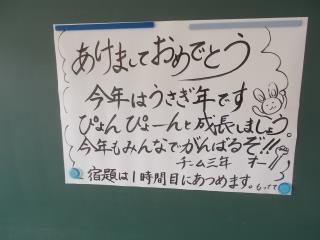 あけましておめでとう
今年はうさぎ年です
ぴょんぴょーんと成長しましょう。
今年もみんなでがんばるぞ!!
チーム三年 オー
宿題は1時間目にあつめます。